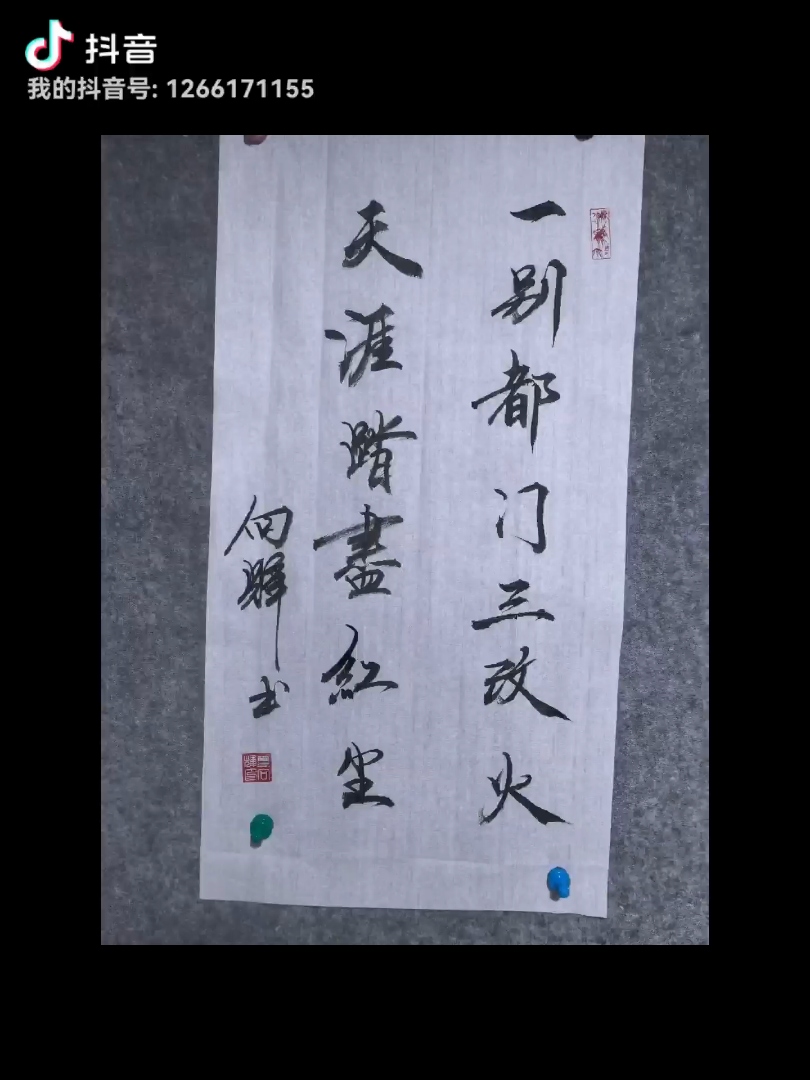 抖音
我的抖音号: 1266171155
一别都门三改火
天涯踏盡紅尘
向辉书